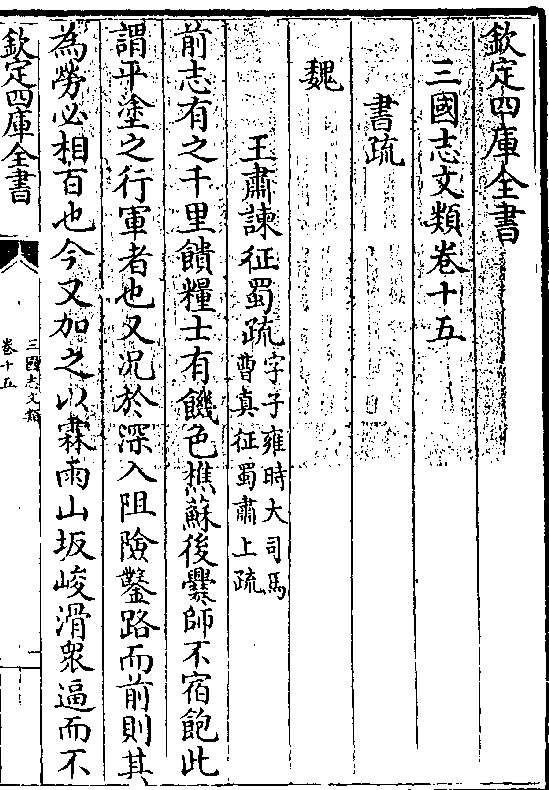 欽定四庫全書
三國志文類卷十五
書疏
魏
王肅諫征蜀疏字子雍時大司馬
曹真征蜀肅上疏
前志有之千里饋糧士有饑色樵蘇後爨師不宿飽此
謂平塗之行軍者也又况於深入阻險鑿路而前則其
為勞必相百也今又加之以霖雨山坂峻滑衆逼而不
欽定四庫全書
三國志文類
卷十五